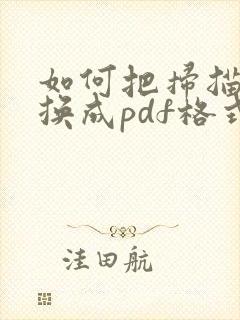 如何把扫描
换成pdf格式
洼田航